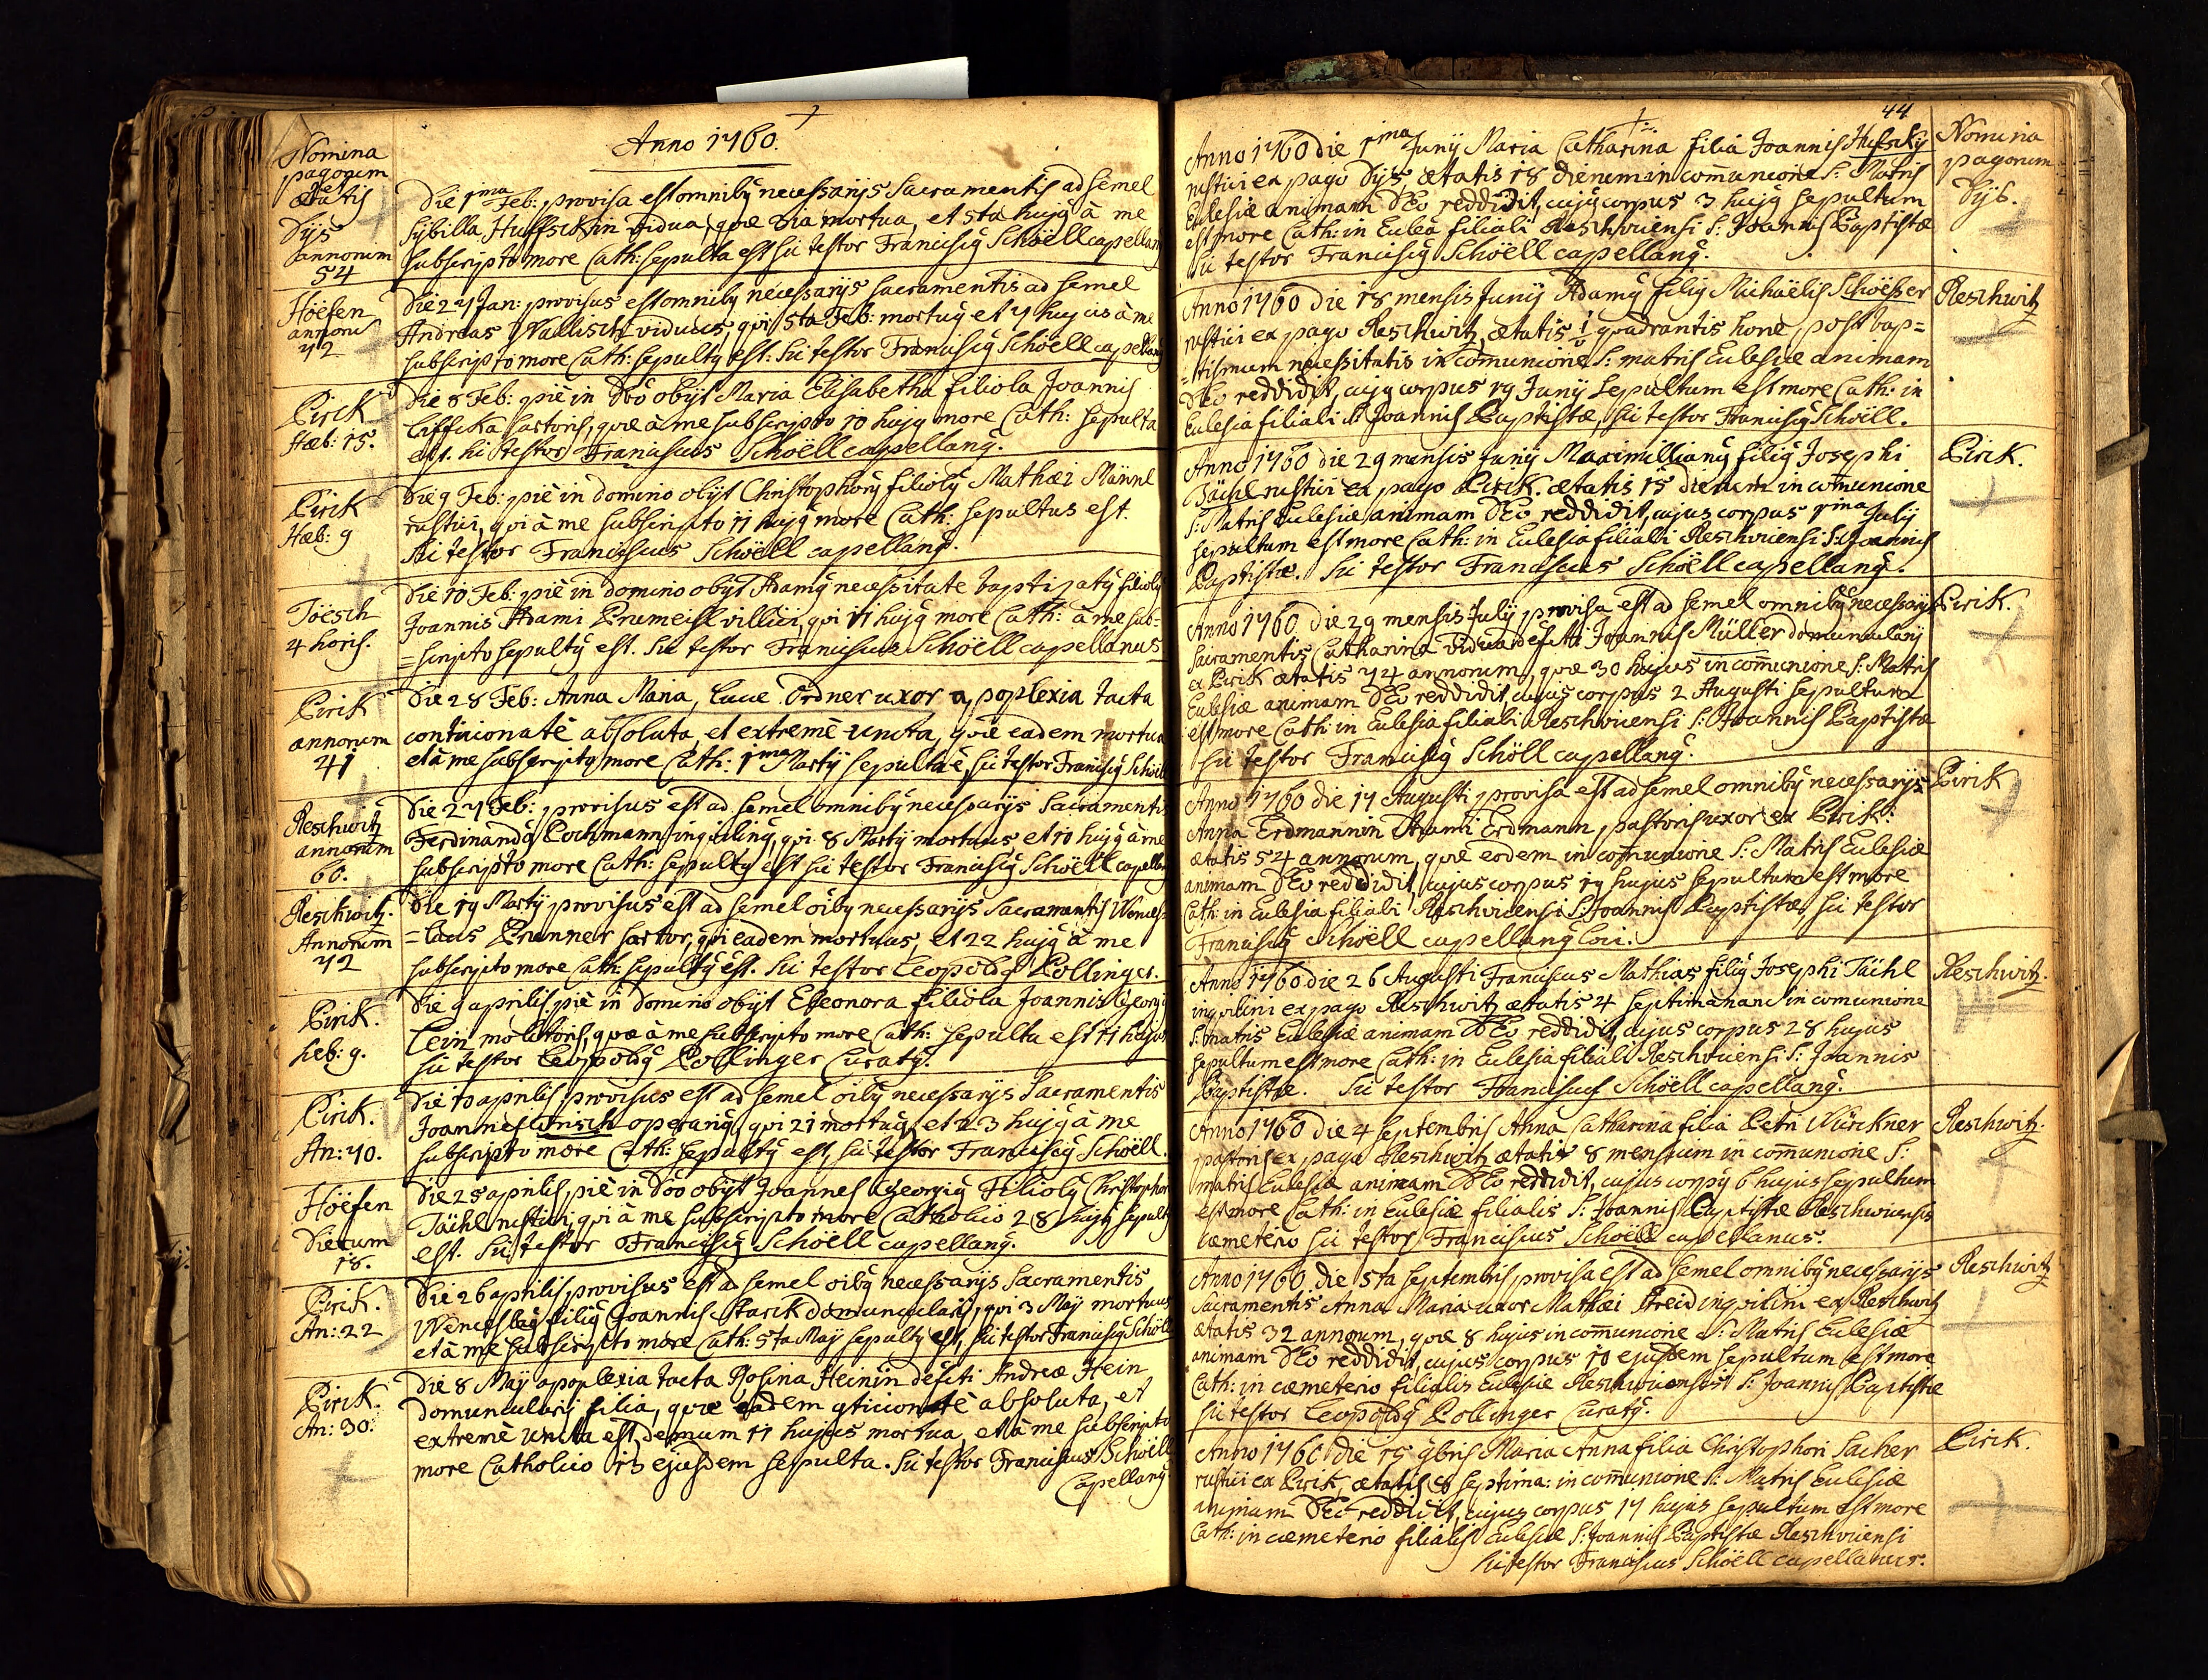 Anno 1760.
Nomina
pagorum
et
ætatis
Dÿs
annorum
54
Die 1ma Feb: provisa est omnibq necessarÿs Sacramentis ad semel
Sÿbilla Huffskin vidua, quæ 3tia mortua, et 5ta hujq à me
subscripto more Cath: sepulta est sic testor Franciscq Schöell capellanq
Höefen
annorum
72
Die 27 Jan: provisus est omnibq necessarÿs sacramentis ad semel
Andreas Wallisch viduus, qui 5ta Feb: mortuq et 7 hujus à me
subscripto more Cath: sepultq est. Sic testor Franciscq Schöell capellanq
Pirk
Heb: 15.
Die 8 Feb: piè in Dno obÿt Maria Elisabetha filiola Joannis
Liffka sartoris, quæ à me subscripto 10 hujq more Cath: sepulta
est. Sic testor Franciscus Schöell capellanq.
Pirk
Heb: 9
Die 9 Feb: piè in domino obÿt Christophorq filiolq Mathæi Männl
rustici, qui à me subscripto 11 hujq more Cath: sepultus est.
Sic testor Franciscus Schöell capellanq.
Töesch
4 horis.
Die 10 Feb: piè in domino obÿt Adamq necessitate baptizatq filiolq
Joannis Adami Prumeisl villici, qui 11 hujq more Cath: à me sub=
=scripto sepultq est. Sic testor Franciscus Schöell capellanus.
Pirk
annorum
41
Die 28 Feb: Anna Maria, Lucæ Ordner uxor apoplexia tacta
conticionatè absoluta, et extremè uncta, quæ eadem mortua
et à me subscripto more Cath: 1ma Martÿ sepulta ē, sic testor Franciscq Schöell
Reschwitz
annorum
60.
Die 27 Feb: provisus est ad semel omnibq necessarÿs Sacramentis
Ferdinandq Lochmann inquilinq, qui 8 Martÿ mortuus, et 10 hujq à me
subscripto more Cath: sepultq est sic testor Franciscq Schöell capellanq
Reschwitz.
Annorum
72
Die 19 Martÿ provisus est ad semel oibq necessarÿs Sacramentis Wences=
=laus Prunner sartor, qui eadem mortuus, et 22 hujq à me
subscripto more Cath: sepultq est. Sic testor Leopoldq Pollinger.
Pirk.
heb: 9.
Die 9 aprilis piè in domino obÿt Eleonora filiola Joannis Georgÿ
Lein molitoris, quæ à me subscripto more Cath: sepulta est 11 hujus
Sic testor Leopoldq Pollinger Curatq.
Pirk.
An: 70.
Die 10 aprilis provisus est ad semel oibq necessarÿs Sacramentis
Joannes Irisch operariq, qui 21 mortuq, et 23 hujq à me
subscripto more Cath: sepultq est, sic testor Franciscq Schöell.
Höefen
Dierum
18.
Die 25 aprilis, piè in Dno obÿt Joannes Georgiq Filiolq Christophori
Tächl rustici, qui à me subscripto more Catholico 28 hujq sepultq
est. Sic testor Franciscq Schöell capellanq.
Pirk.
An: 22
Die 26 aprilis, provisus est ad semel oibq necessarÿs Sacramentis
Wenceslaq filiq Joannis Starck domuncularÿ, qui 3 Maÿ mortuus
et à me subscripto more Cath: 5ta Maÿ sepultq est, sic testor Franciscq Schöell
Pirk.
An: 30.
Die 8 Maÿ apoplexia tacta Rosina Heinin defcti Andreæ Hein
domuncularÿ filia, quæ eadem conticionatè absoluta, et
extremè uncta est, demum 11 hujus mortua, et à me subscripto
more Catholico 13 ejusdem sepulta. Sic testor Franciscus Schöell
Capellanq
44
Nomina
pagorum
Anno 1760 die 1ma Junÿ Maria Catharina filia Joannis Hufskÿ
rustici ex pago Dÿs, ætatis 18 dierum in comunione S: Matris
Ecclesiæ animam DEo reddidit, cujq corpus 3 hujq sepultum
est more Cath: in Ecclea filiali Reschwicensi S: Joannis Baptistæ
Sic testor Franciscq Schöell capellanq.
Dÿs.
Anno 1760 die 18 mensis Junÿ Adamq filiq Michaëlis Schöeßer
rustici ex pago Reschwitz, ætatis 1 quadrantis horæ, post bap=
=tismum necessitatis in comunione S: matris Ecclesiæ animam
DEo reddidit, cujq corpus 19 Junÿ sepultum est more Cath: in
Ecclesia filiali S: Joannis Baptistæ, sic testor Franciscq Schöell.
Reschwitz
Anno 1760 die 29 mensis Junÿ Maximillianq filiq Josephi
Tächl rustici ex pago Pirk. ætatis 15 dierum in comunione
S: Matris Ecclesiæ animam DEo reddidit, cujus corpus 1ma Julÿ
sepultum est more Cath: in Ecclesia filiali Reschwicensi S: Joannis
Baptistæ. Sic testor Franciscus Schöell capellanq.
Pirk.
Anno 1760 die 29 mensis Julÿ, provisa est ad semel omnibq necessarÿs
Sacramentis Catharina vidua defcti Joannis Müller domuncularÿ
ex Pirk ætatis 74 annorum, quæ 30 hujus in comunione S: Matris
Ecclesiæ animam DEo reddidit, cujus corpus 2 Augusti sepultum
est more Cath: in Ecclesia filiali Reschwicensi S: Joannis Baptistæ
Sic testor Franciscq Schöll capellanq.
Pirk.
Anno 1760 die 17 Augusti provisa est ad semel omnibq necessarÿs
Anna Erdmannin Adami Erdmann, pastoris uxor ex Pirk:
ætatis 54 annorum, quæ eodem in comunione S: Matris Ecclesiæ
animam DEo reddidit, cujus corpus 19 hujus sepultum est more
Cath: in Ecclesia filiali Reschwicensi S: Joannis Baptistæ, sic testor
Franciscq Schöell capellanq loci.
Pirk
Anno 1760 die 26 Augusti Franciscus Mathias filiq Josephi Tächl
inquilini ex pago Reschwitz ætatis 4 septimanarū in comunione
S: matris Ecclesiæ animam DEo reddidit, cujus corpus 28 hujus
sepultum est more Cath: in Ecclesia filiali Reschwicensi S: Joannis
Baptistæ. Sic testor Franciscus Schöell capellanq.
Reschwitz.
Anno 1760 die 4 septembris Anna Catharina filia Petri Würckner
pastoris ex pago Reschwitz ætatis 8 mensium in comunione S:
matris Ecclesiæ animam DEo reddidit, cujus corpq 6 hujus sepultum
est more Cath: in Ecclesiæ filialis S: Joannis Baptistæ Reschwicensis
cæmeterio sic testor Franciscus Schöell capellanus.
Reschwitz.
Anno 1760 die 5ta septembris, provisa est ad semel omnibq necessarÿs
Sacramentis Anna Maria uxor Mathæi Streid inquilini ex Reschwitz
ætatis 32 annorum, quæ 8 hujus in comunione S: Matris Ecclesiæ
animam DEo reddidit, cujus corpus 10 ejusdem sepultum est more
Cath: in cæmeterio filialis Ecclesiæ Reschwicensis S: Joannis Baptistæ
sic testor Leopoldq Pollinger Curatq.
Reschwitz
Anno 1760 die 15 9bris Maria Anna filia Christophori Sacher
rustici ex Pirk, ætatis 8 septima: in comunione S: Matris Ecclesiæ
animam DEo reddidit, cujus corpus 17 hujus sepultum est more
Cath: in cæmeterio filialis Ecclesiæ S: Joannis Baptistæ Reschwicensi
Sic testor Franciscus Schöell capellanus.
Pirk.